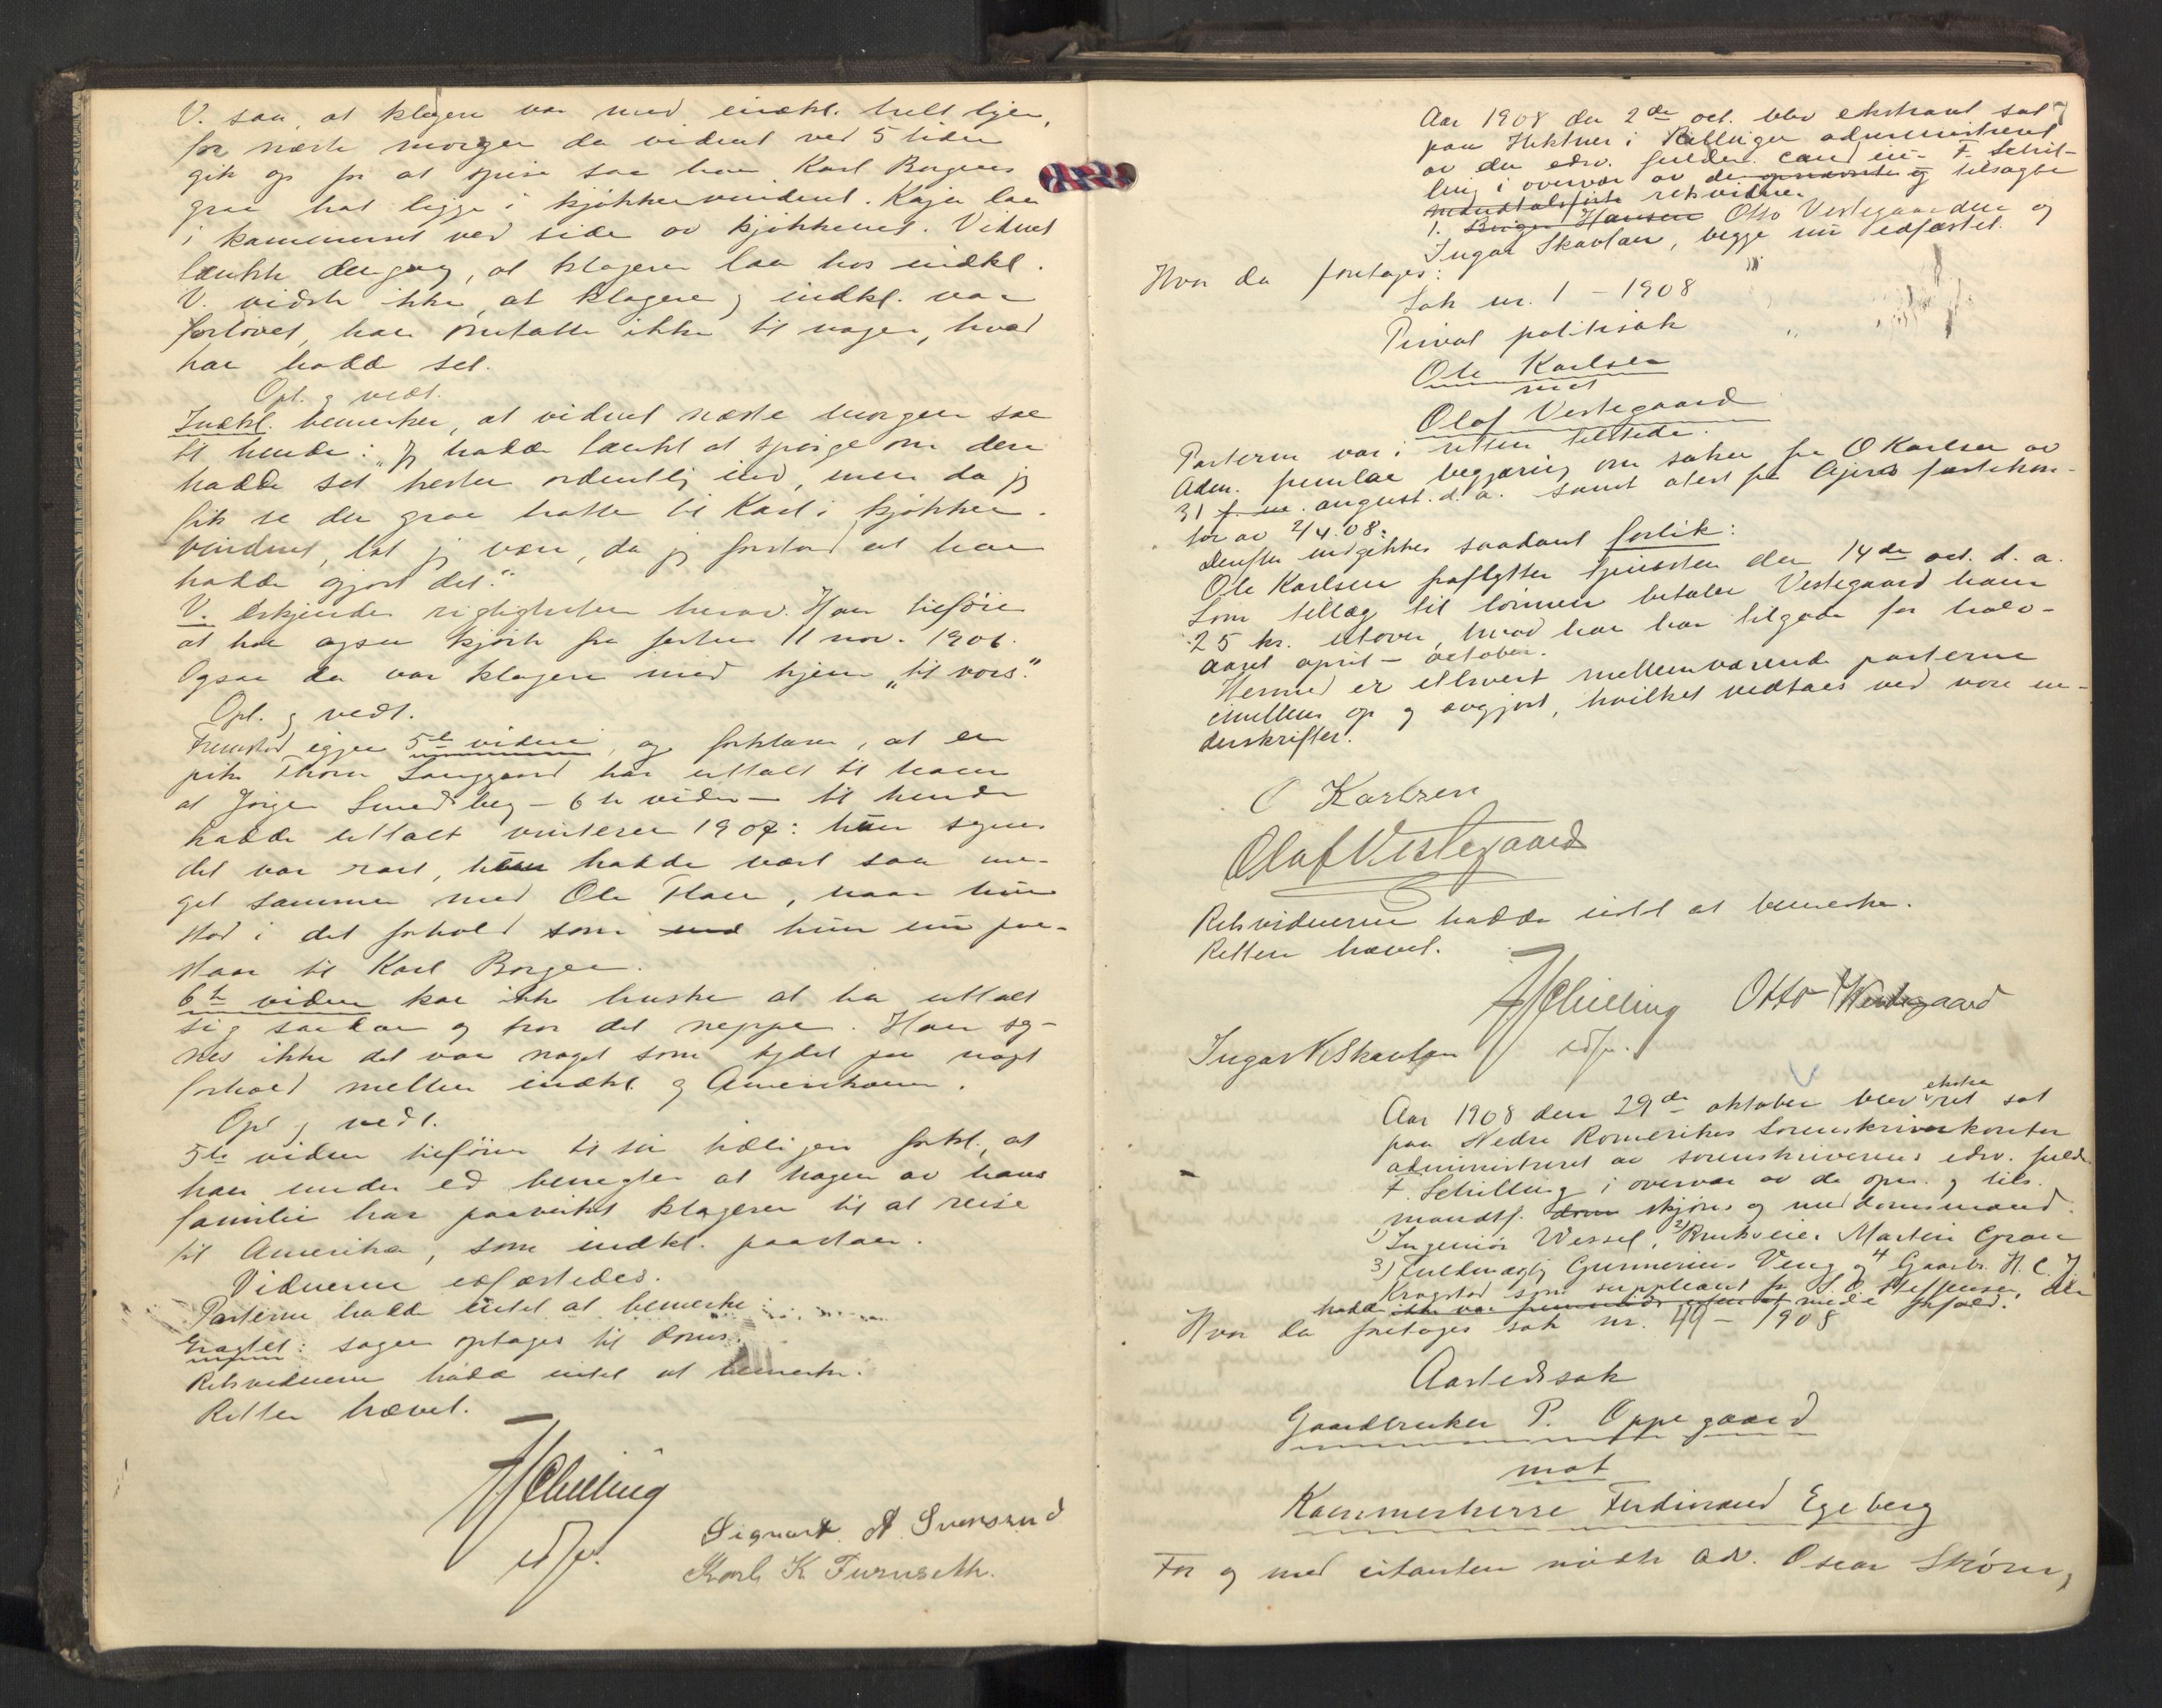 V. saa, at klageren var med indkl. helt hjem,
for næste morgen da vidnet ved 5 tiden
gik op for at spise saa han Karl Borgens
graa hat ligge i kjøkkenvinduet. Kajen laa
i kammerset ved side av kjøkkenet. Vidnet
tænkte dengang, at klageren laa hos indkl.
V. vidste ikke, at klageren og indkl. var
forlovet, han omtalte ikke til nogen, hvad
han hadde set.
Opl. og vedt.
Indkl. bemerker, at vidnet næste morgen sae
til hende: "Jeg hadde tænkt at spørge om dere
hadde sat hesten ordentlig ind, men da jeg
fik se den graa hatten til Karl i kjøkken-
vinduet, lot jeg være, da jeg forstod at han
hadde gjort det."
V. erkjender rigtigheten herav. Han tilføier
at han ogsaa kjørte fra festen 11 nov. 1906.
Ogsaa da var klageren med hjem "til vors".
Opl. og vedt.
Fremstod igjen 5te vidne, og forklarer, at en
pike Thora Langgaard har uttalt til ham
at Jørgen Smedsberg - 6te vidne - til hende
hadde uttalt vinteren 1907: han synes
det var rart, hun hadde vært saa me-
get sammen med Ole Flaen, naar hun
stod i det forhold som hun nu paa-
staar til Karl Borgen.
6te vidne kan ikke huske at ha uttalt
sig saadan og tror det neppe. Han sy-
nes ikke det var noget som tydet paa noget
forhold mellem indkl. og Amerikaneren.
Opl. og vedt.
5te vidne tilføier til sin tidligere forkl., at
han under ed benegter at nogen av hans
familie har paavirket klageren til at reise
til Amerika, som indkl. paastaar.
Vidnerne edfæstedes.
Parterne hadde intet at bemerke.
Eragtet: sagen optages til doms.
Retsvidnerne hadde intet at bemerke.
Retten hævet.
F Schilling
edsv.
Sigvart A. Svensrud
Karl K Furuseth.
Aar 1908 den 2den oct. blev ekstraret sat
paa Hektner i Rællingen administreret
av den edsv. fuldm. cand. jur. F. Schil-
ling i overvær av de opnævnte og tilsagte
mandtalsførte retsvidner
1. Birger Hansen Otto Vestegaarden og
Ingar Skavlan, begge nu edfæstet.
Hvor da foretages:
Sak nr. 1 - 1908
Privat politisak
Ole Karlsen
mot
Olaf Vestegaard
Parterne var i retten tilstede.
Adm. fremlae begjæring om saken fra O Karlsen av
31 f. m. august d. a. samt atest fra Lejrds forlikskon-
tor av 2/4.08.
Derefter indgikkes saadant forlik:
Ole Karlsen fraflytter tjenesten den 14de oct. d. a.
Som tillæg til lønnen betaler Vestegaard ham
25 kr. utover, hvad han har tilgode for halv-
aaret april - october.
Hermed er ethvert mellemværende parterne
imellem op og avgjort, hvilket vedtaes ved vore un-
derskrifter.
O Karlsen
Olaf Vestegaard
Retsvidnerne hadde intet at bemerke.
Retten hævet.
F Schilling Otto Westegaard
Ingar N Skavlan edsv.
Aar 1908 den 29de oktober blev ekstra ret sat
paa Nedre Romerikes Sorenskriverkontor
administreret av sorenskriverens edsv. fuldm.
F. Schilling i overvær av de opn. og tils.
mandtf. dom skjøns og meddomsmænd.
1) Ingeniør Wessel, 2) Brukseier Martin Gran
3) Fuldmægtig Gunnerius Veng og 4 Gaardbr. H. C. J.
Krogstad som suppleant for S. O. Steffensen, der
hadde forfald.
Hvor da foretages sak nr. 49 - 1908
Aastedssak
Gaardbruker P. Oppegaard
mot
Kammerherre Ferdinand Egeberg
For og med citanten møtte adv. Oscar Strøm,